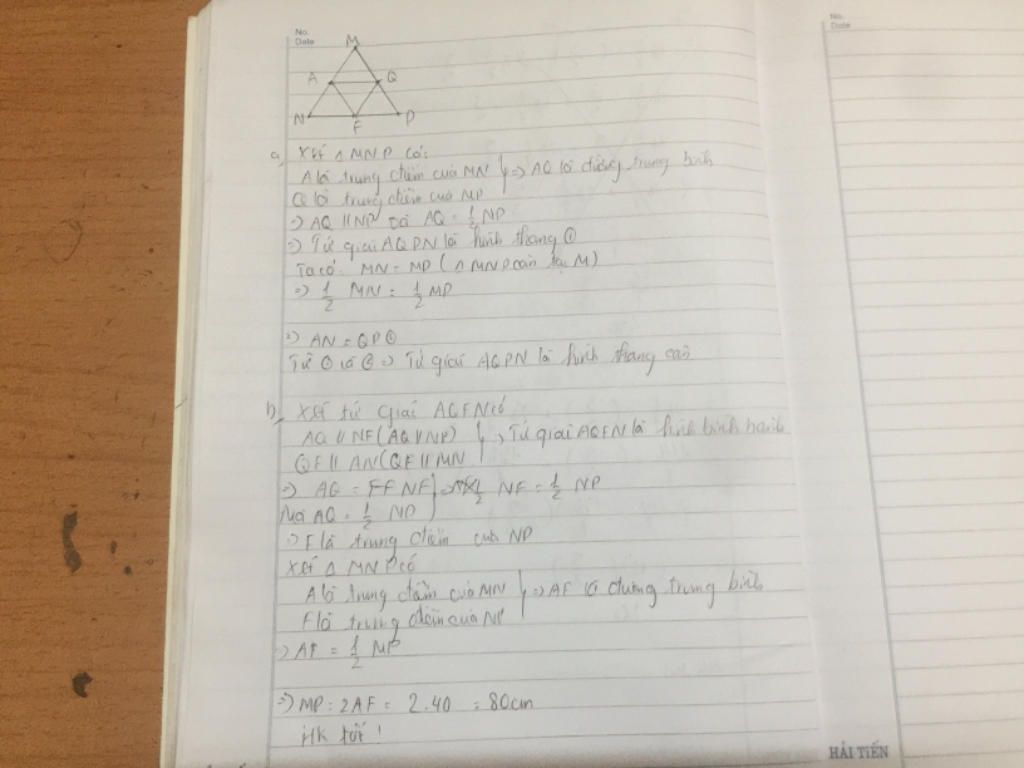 No.
Date
No.
Date
M
A
Q
N
F
P
a, Xét △MNP có:
A là trung điểm của MN } => AQ là đường trung bình
Q là trung điểm của MP
=> AQ // NP và AQ = 1/2 NP
=> Tứ giác AQPN là hình thang ①
Ta có: MN = MP (△MNP cân tại M)
=> 1/2 MN = 1/2 MP
=> AN = QP ②
Từ ① và ② => Tứ giác AQPN là hình thang cân
b, Xét tứ giác AQFN có
AQ // NF (AQ // NP) } => Tứ giác AQFN là hình bình hành
QF // AN (QF // MN
=> AQ = NF } => NF = 1/2 NP
Mà AQ = 1/2 NP
=> F là trung điểm của NP
Xét △MNP có
A là trung điểm của MN } => AF là đường trung bình
F là trung điểm của NP
=> AF = 1/2 MP
=> MP = 2AF = 2.40 = 80cm
Hk tốt!
HẢI TIẾN